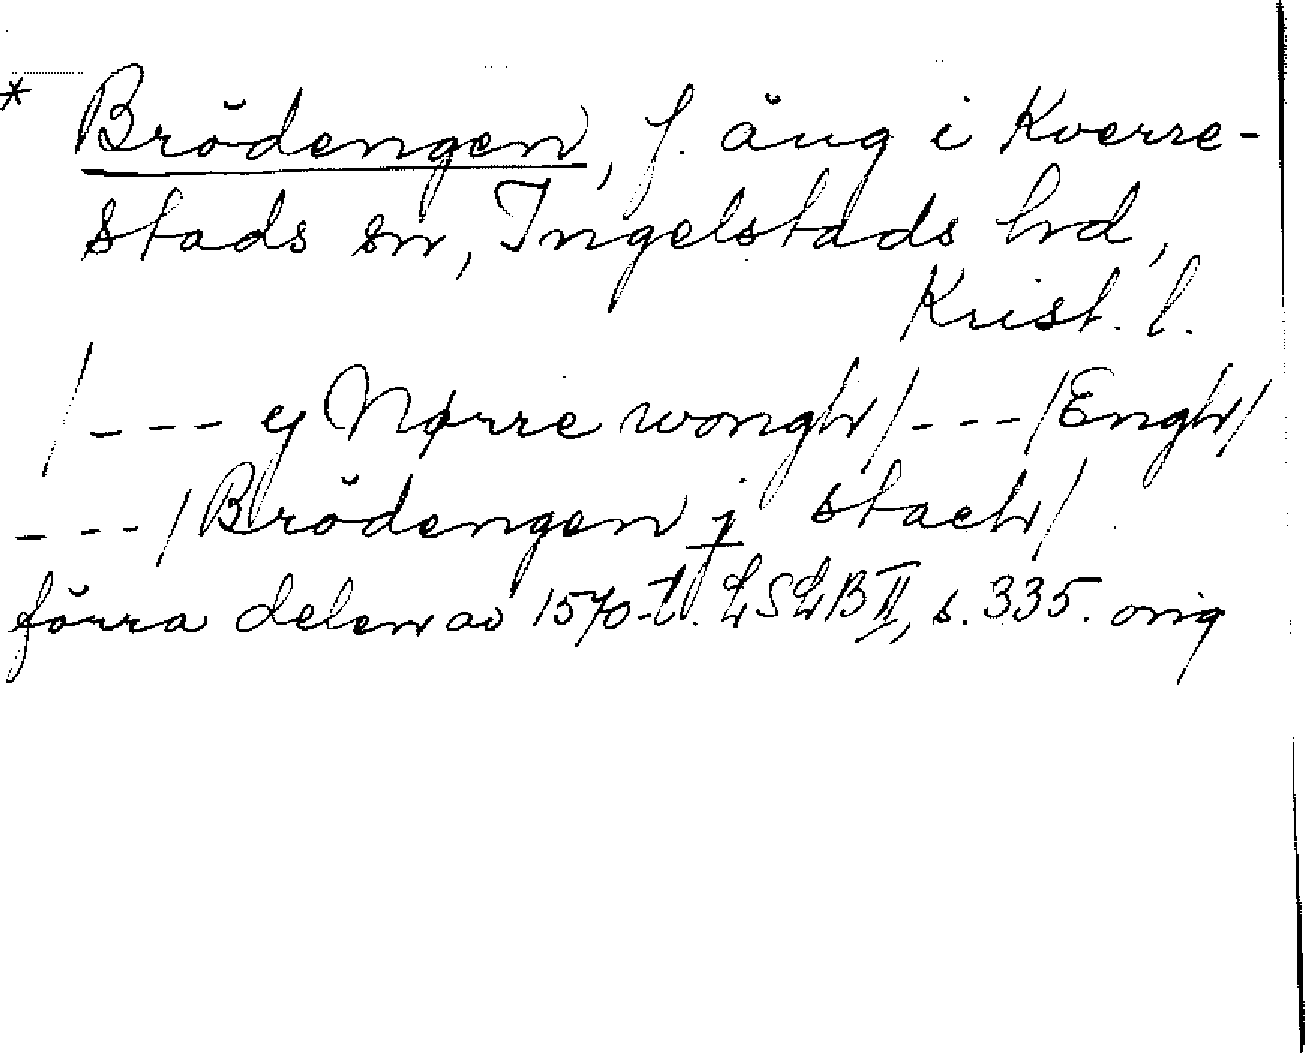 * Brödengen, f. äng i Kverre-
stads sn, Ingelstads hd,
Krist. l.
/--- ej Nørre wongh/---/Engh/
---/Brödengen j stack/.
förra delen av 1570-t. LSLB II, s. 335. orig